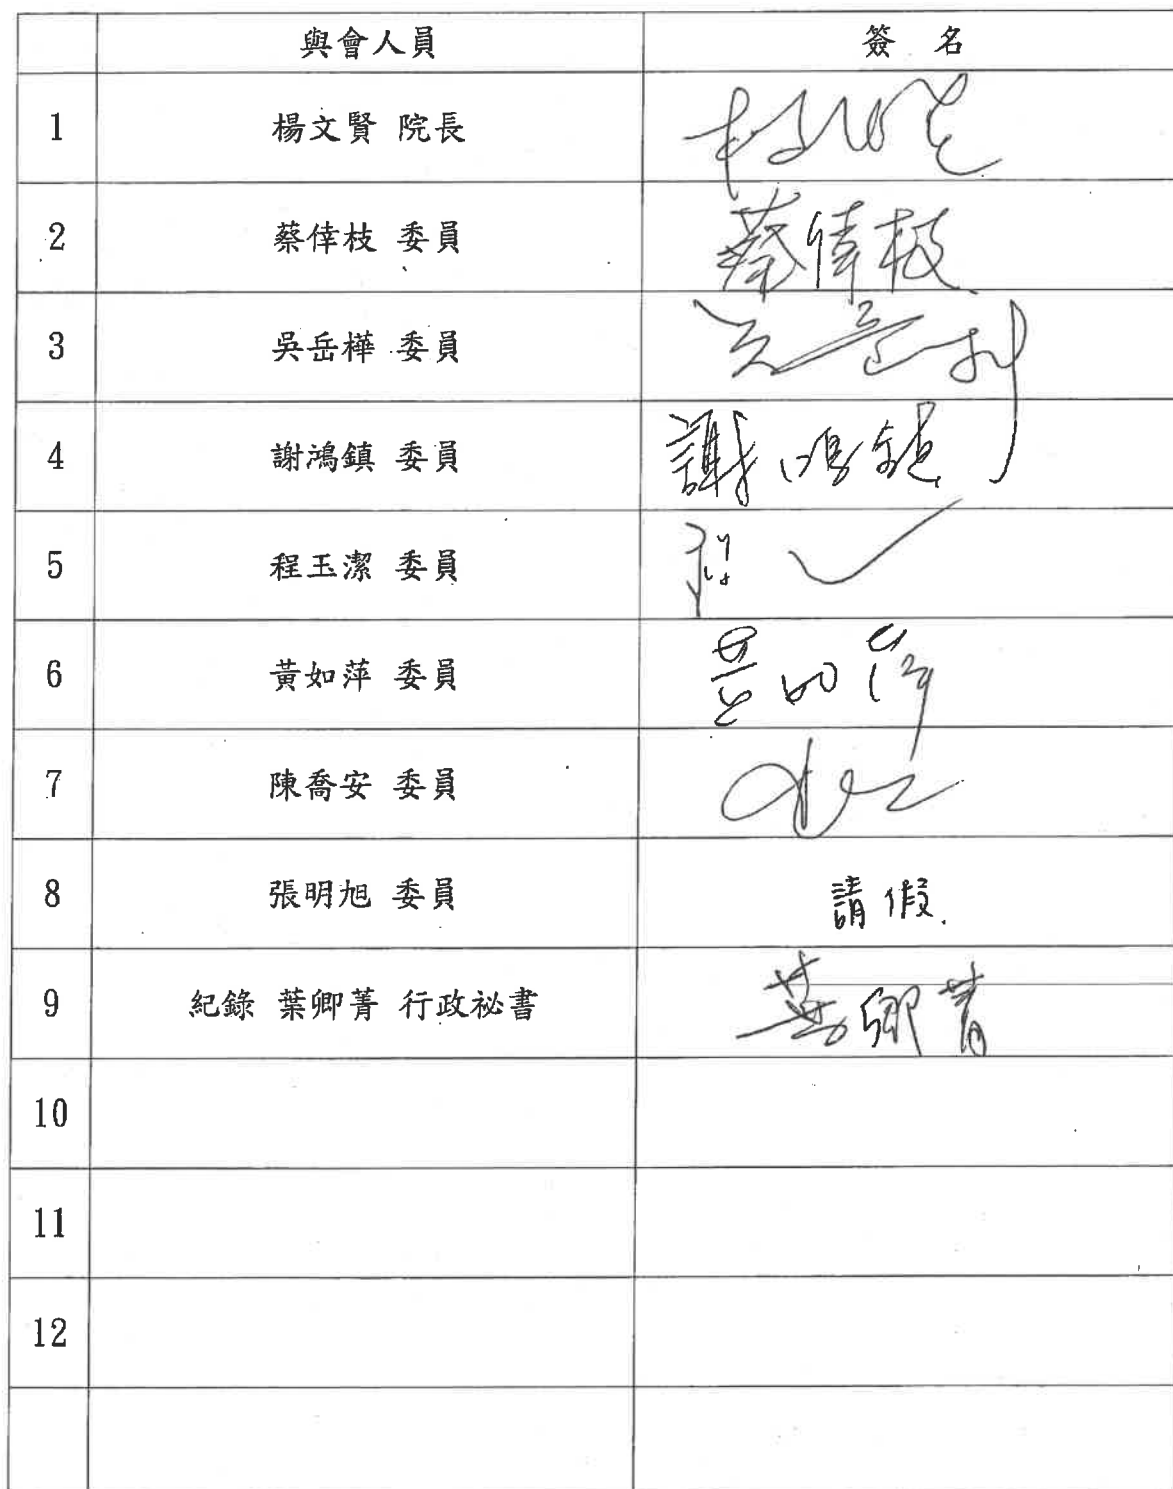 與會人員 簽名
1 楊文賢 院長
2 蔡倖枝 委員 蔡倖枝
3 吳岳樺 委員
4 謝鴻鎮 委員 謝鴻鎮
5 程玉潔 委員 程
6 黃如萍 委員 黃如萍
7 陳喬安 委員
8 張明旭 委員 請假.
9 紀錄 葉卿菁 行政祕書 葉卿菁
10
11
12